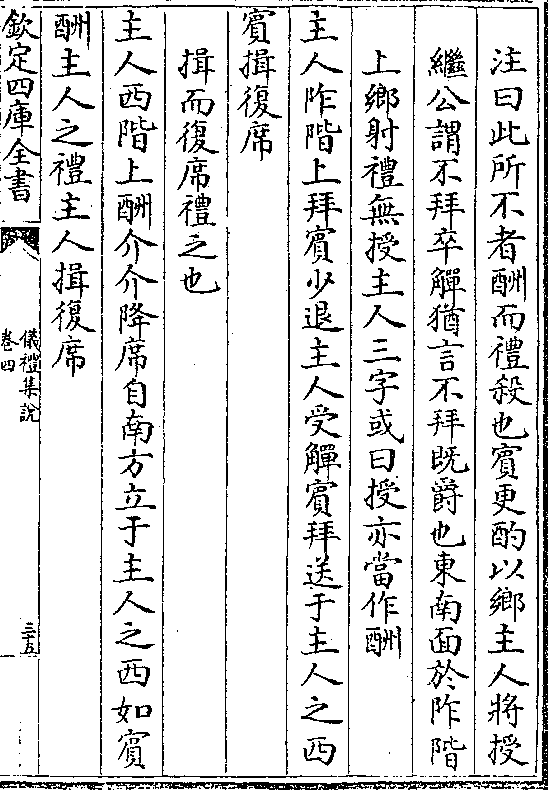 注曰此所不者酬而禮殺也賓更酌以鄉主人將授
繼公謂不拜卒觶猶言不拜既爵也東南面於阼階
上鄉射禮無授主人三字或曰授亦當作酬
主人阼階上拜賓少退主人受觶賓拜送于主人之西
賓揖復席
揖而復席禮之也
主人西階上酬介介降席自南方立于主人之西如賓
酬主人之禮主人揖復席
欽定四庫全書
儀禮集說
卷四
三五